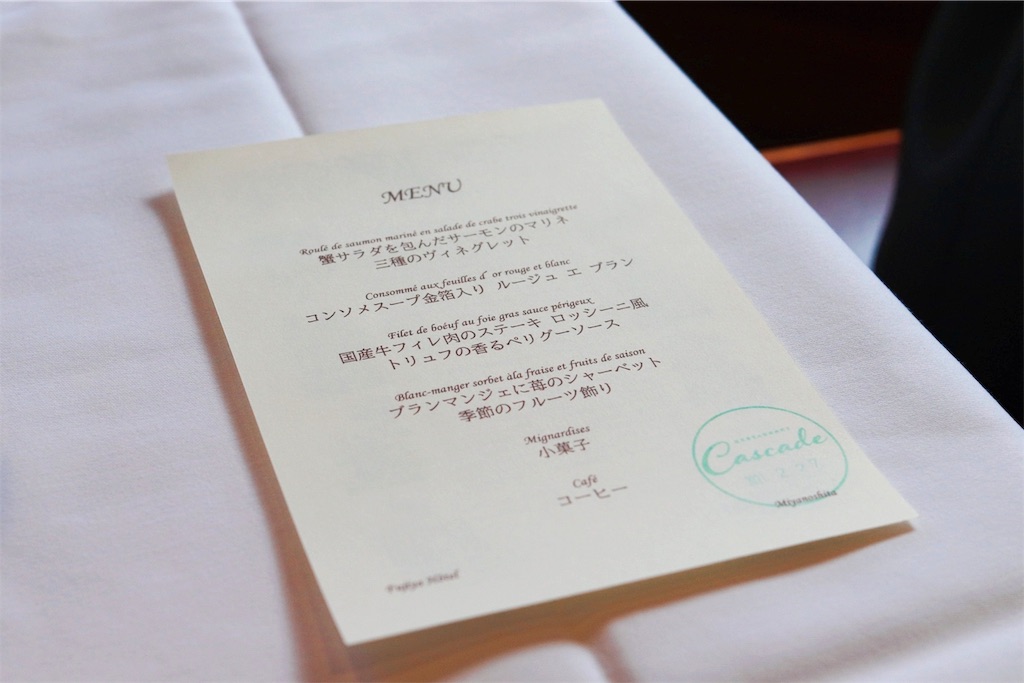 MENU
Roulé de saumon mariné en salade de crabe trois vinaigrette
蟹サラダを包んだサーモンのマリネ
三種のヴィネグレット
Consommé aux feuilles d' or rouge et blanc
コンソメスープ金箔入り ルージュ エ ブラン
Filet de boeuf au foie gras sauce périgeux
国産牛フィレ肉のステーキ ロッシーニ風
トリュフの香るペリグーソース
Blanc-manger sorbet àla fraise et fruits de saison
ブランマンジェに苺のシャーベット
季節のフルーツ飾り
Mignardises
小菓子
Café
コーヒー
Cascade
2.27
Miyanoshita
Fujiya Hôtel